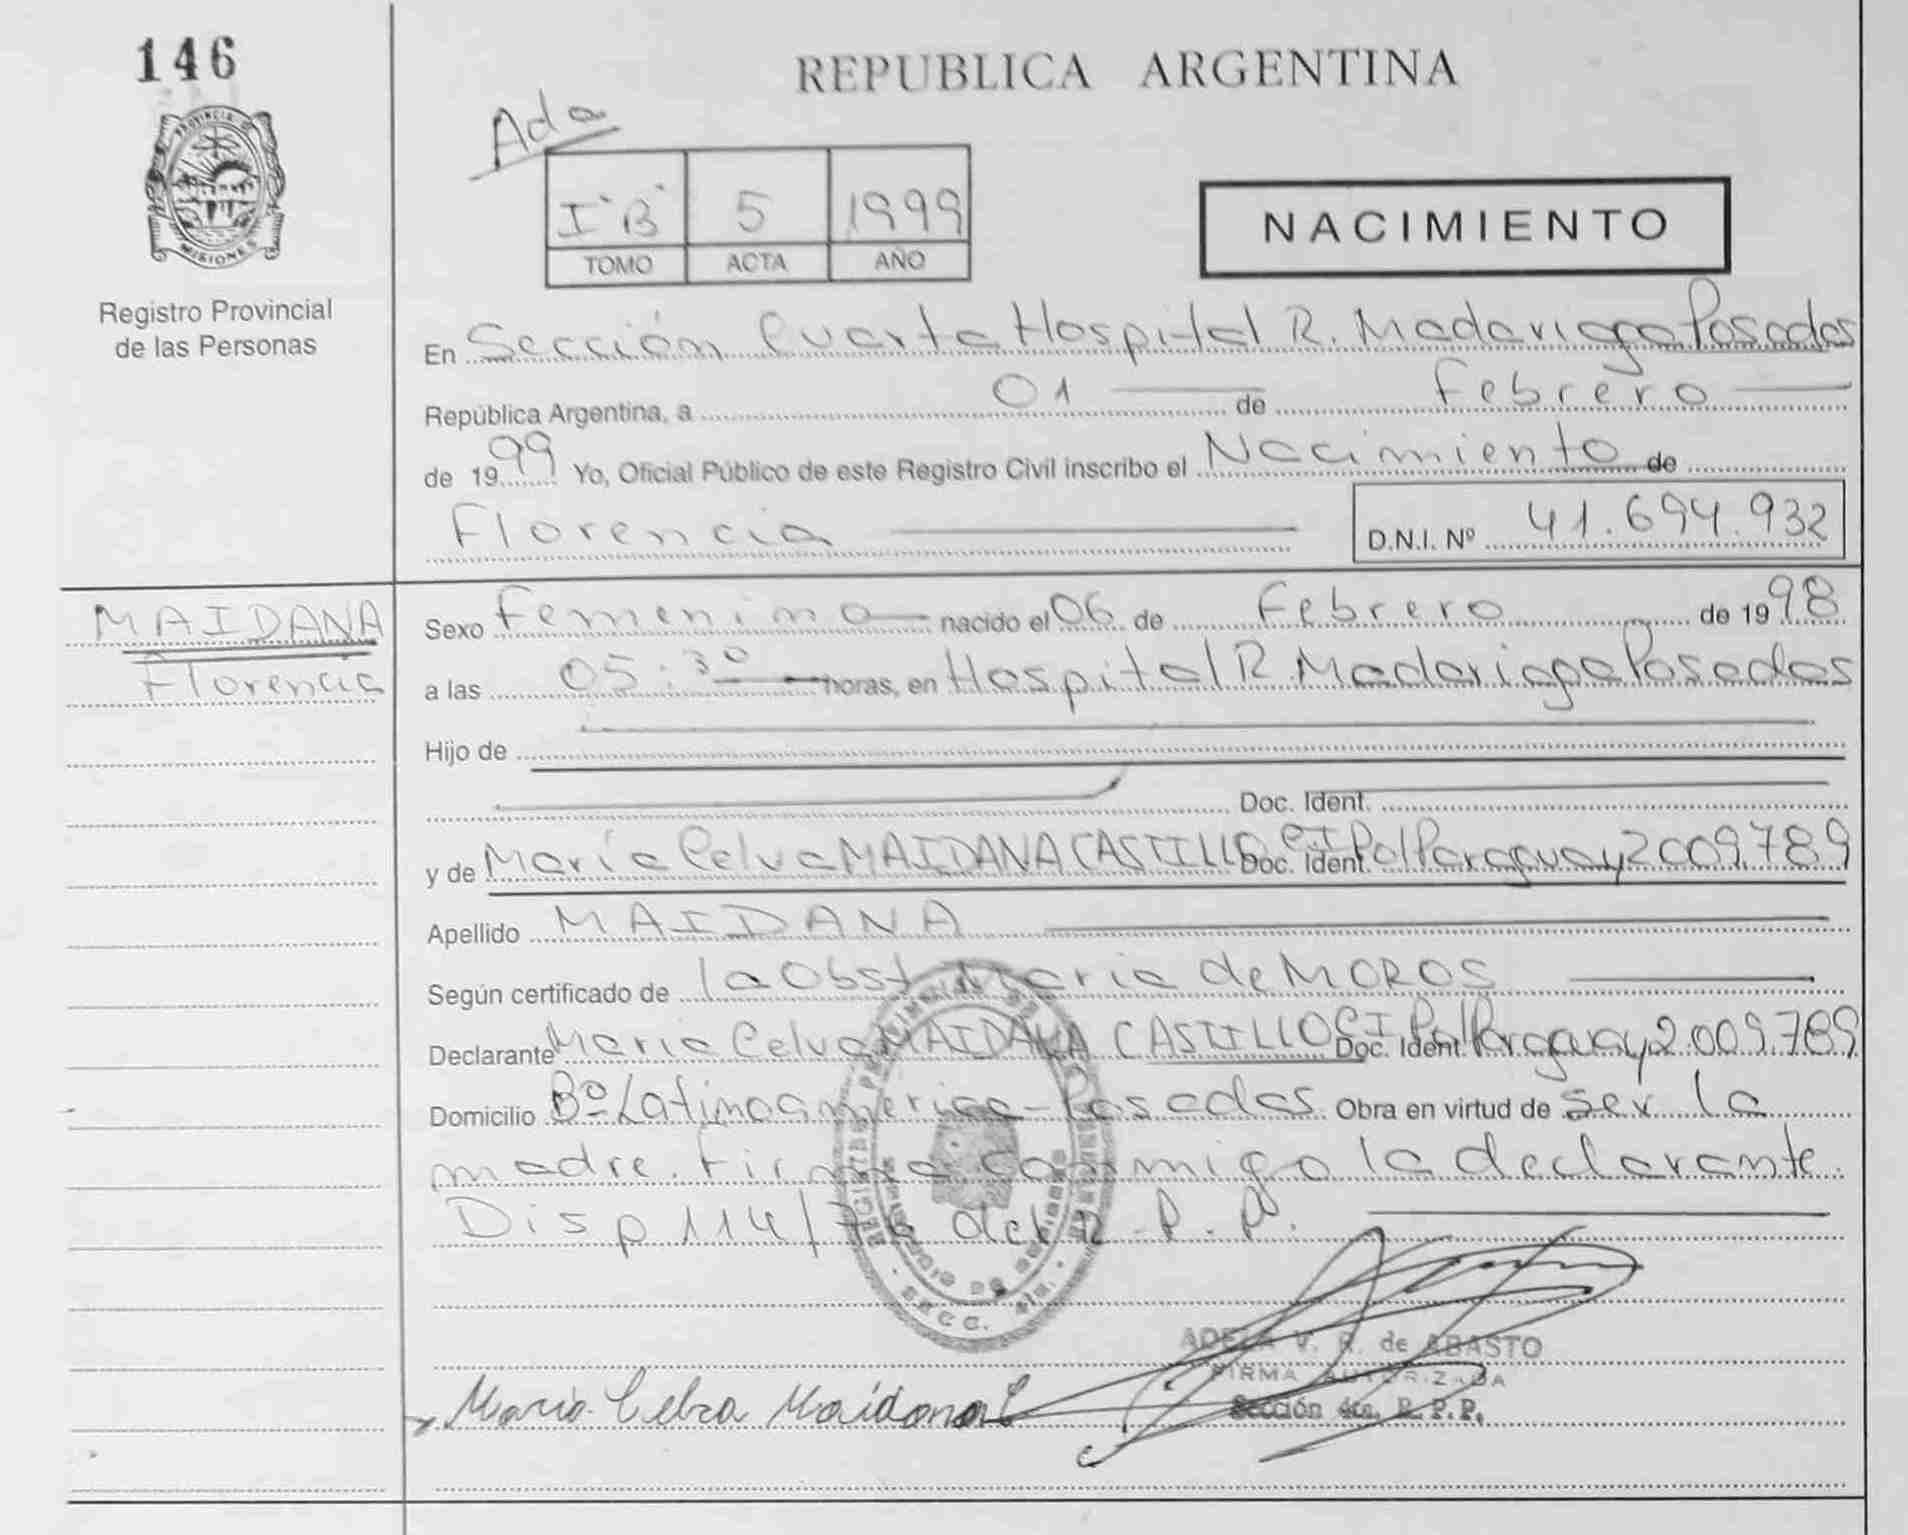 146
REPUBLICA ARGENTINA
Ada
I "B" 5 1999
TOMO ACTA AÑO
NACIMIENTO
PROVINCIA DE
MISIONES
Registro Provincial
de las Personas
En Sección Cuarta Hospital R. Madariaga Posadas
República Argentina, a 01 de Febrero
de 1999 Yo, Oficial Público de este Registro Civil inscribo el Nacimiento de
Florencia
D.N.I. Nº 41.694.932
MAIDANA
Florencia
Sexo Femenino nacido el 06 de Febrero de 1998
a las 05:30 horas, en Hospital R. Madariaga Posadas
Hijo de
Doc. Ident.
y de María Celva MAIDANA CASTILLO Doc. Ident. CI Pol Paraguay 2009.789
Apellido MAIDANA
Según certificado de la Obst María de MOROS
Declarante María Celva MAIDANA CASTILLO Doc. Ident. CI Pol Paraguay 2.009.789
Domicilio Bº Latinoamerica - Posadas Obra en virtud de ser la
madre. Firma conmigo la declarante.
Disp 114/ del R.P.P.
SECC. 4ta.
ADELA V. R. de ABASTO
FIRMA AUTORIZADA
Sección 4ta. R.P.P.
Maria Celva Maidana C